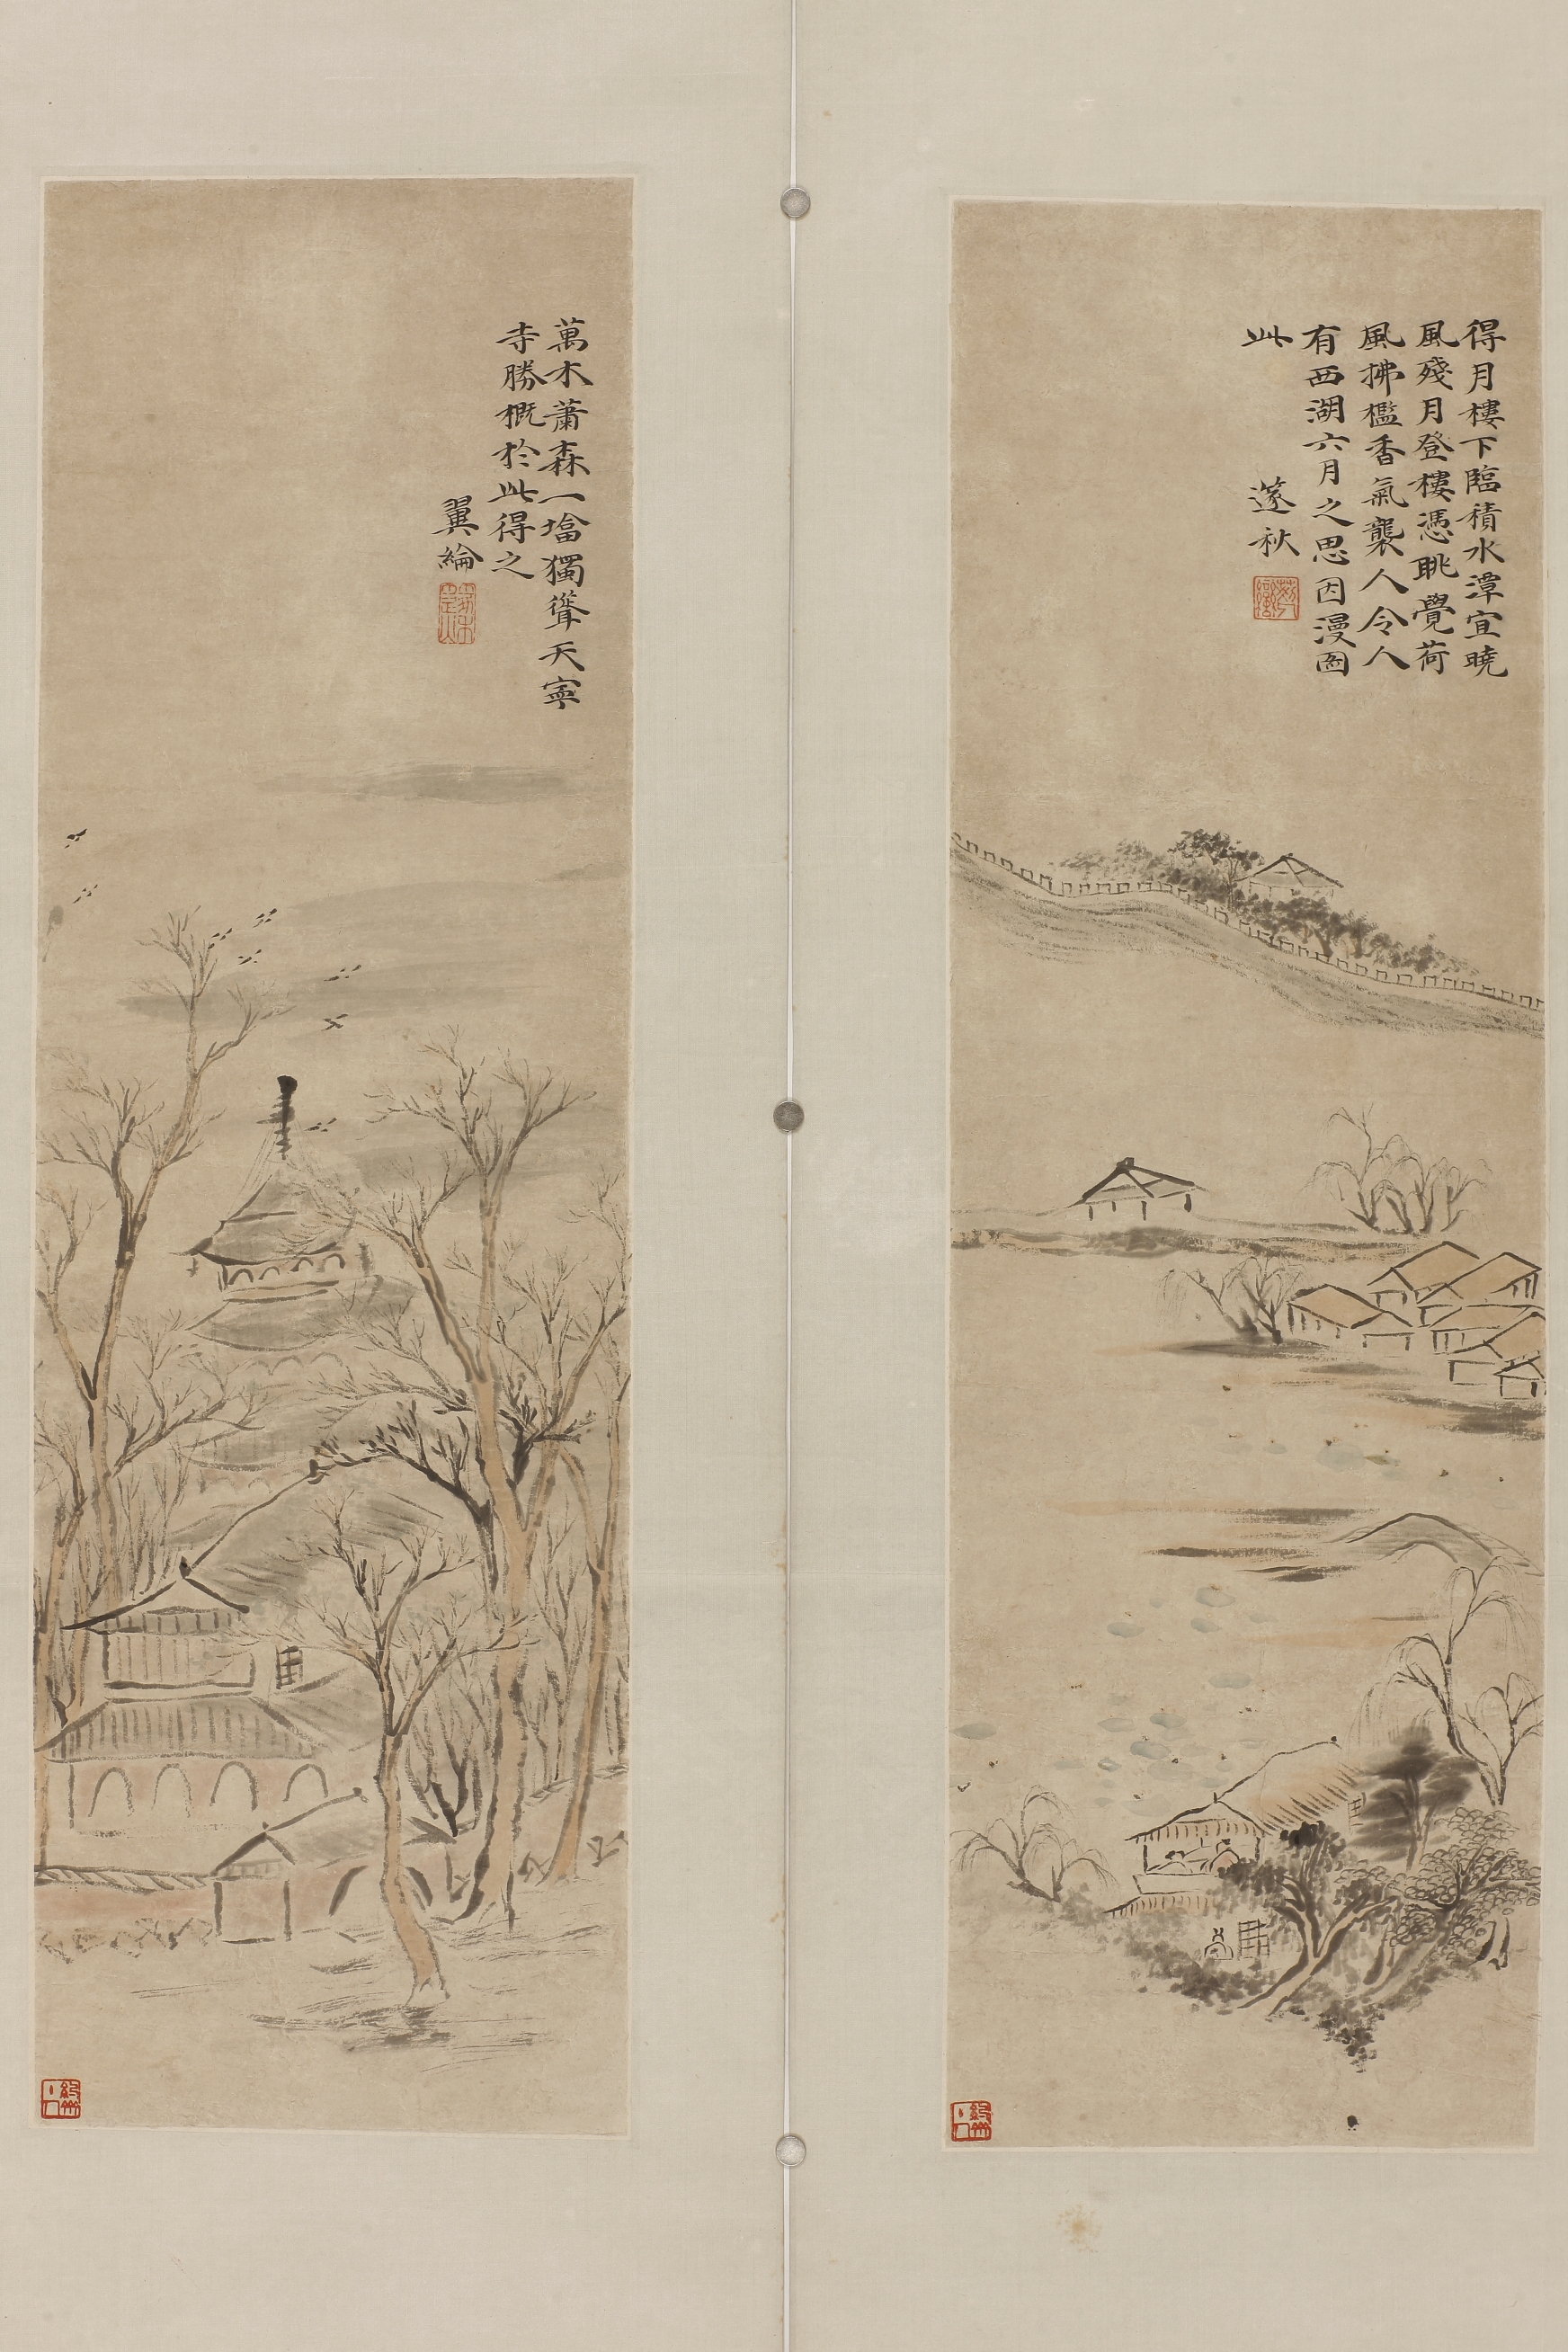 得月樓下臨積水潭宜曉
風殘月登樓憑眺覺荷
風拂檻香氣襲人令人
有西湖六月之思因漫圖
此
邃秋
萬木蕭森一墖獨聳天寧
寺勝概於此得之
翼綸